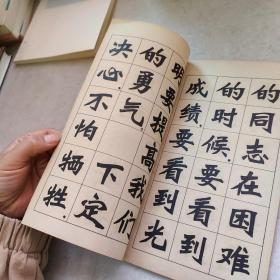 的同志在困难
的时候,要看到
成绩,要看到光
明,要提高我们
的勇气。下定
决心,不怕牺牲。